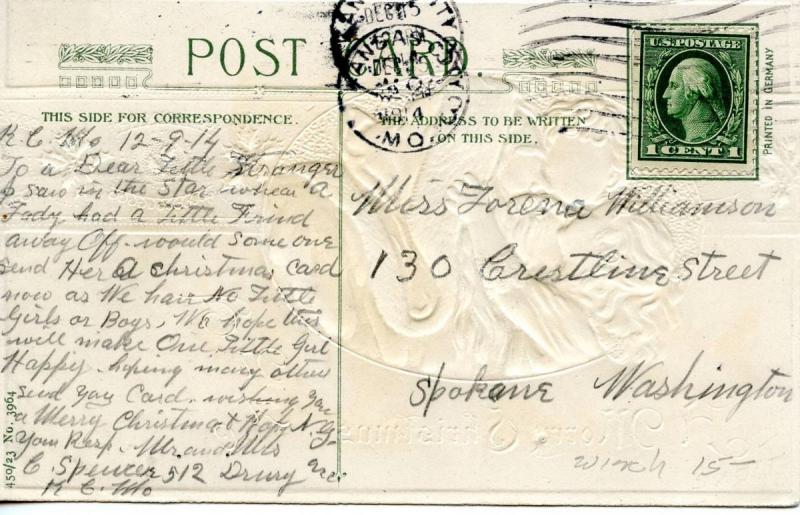 POST CARD.
KANSAS CITY
DEC
MO.
1914
U.S. POSTAGE
1 CENT 1
PRINTED IN GERMANY
THIS SIDE FOR CORRESPONDENCE.
THE ADDRESS TO BE WRITTEN
ON THIS SIDE.
K.C. Mo 12-9-14
To a Dear Little Stranger
I saw in the Star where a
Lady had a Little Friend
away Off. would some one
send Her a christmas card
now as We have No Little
Girls or Boys, We hope this
will make One Little Girl
Happy. hoping many others
send You Card. wishing you
a Merry Christmas & Hapy N.Y.
Your Resp. Mr. and Mrs
C. Spencer 512 Drury Ave.
K C. Mo
450/23 No. 3964
Miss Lorena Williamson
130 Crestline Street
Spokane Washington
A Merry Christmas
15-